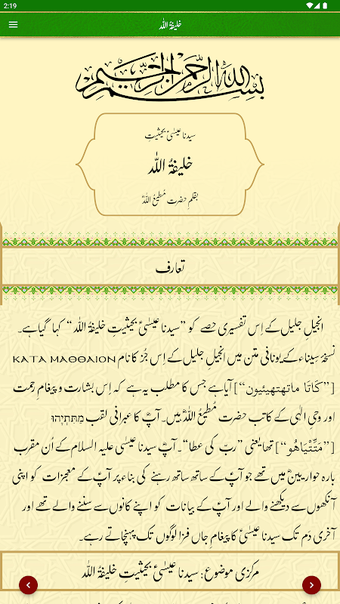 2:19
خلیفۃ اللہ
بسم الله الرحمن الرحيم
سیدنا عیسیٰؑ بحیثیتِ
خلیفۃُ اللّٰہ
بقلم حضرت مُطیعُ اللہؒ
تعارف
انجیل جلیل کے اِس تفسیری حصے کو ”سیدنا عیسٰیؑ بحیثیتِ خلیفۃ اللہ“ کہا گیا ہے۔
نسخۂ سیناء کے یونانی متن میں انجیل جلیل کے اِس جُز کا نام ΚΑΤΑ ΜΑΘΘΑΙΟΝ
[”كَاتَا مَاتهتهيئيون“] آیا ہے جس کا مطلب یہ ہے کہ اِس بشارت و پیغام رحمت
اور وحی الٰہی کے کاتب حضرت مُطیعُ اللہؒ ہیں۔ آپؒ کا عبرانی لقب מַתִּתְיָהוּ
[”مَتِّتْيَاهُو“] تھا یعنی ”ربّ کی عطا“۔ آپ سیدنا عیسٰی علیہ السلام کے اُن مقرب
بارہ حواریینؓ میں تھے جو آپؑ کے ساتھ ساتھ رہنے کی بناء پر آپؑ کے معجزات کو اپنی
آنکھوں سے دیکھنے والے اور آپؑ کے بیانات کو اپنے کانوں سے سننے والے تھے اور
آخری دَم تک سیدنا عیسٰیؑ کا پیغام جاں فزا لوگوں تک پہنچاتے رہے۔
مرکزی موضوع: سیدنا عیسٰیؑ بحیثیتِ خلیفۃُ اللہ